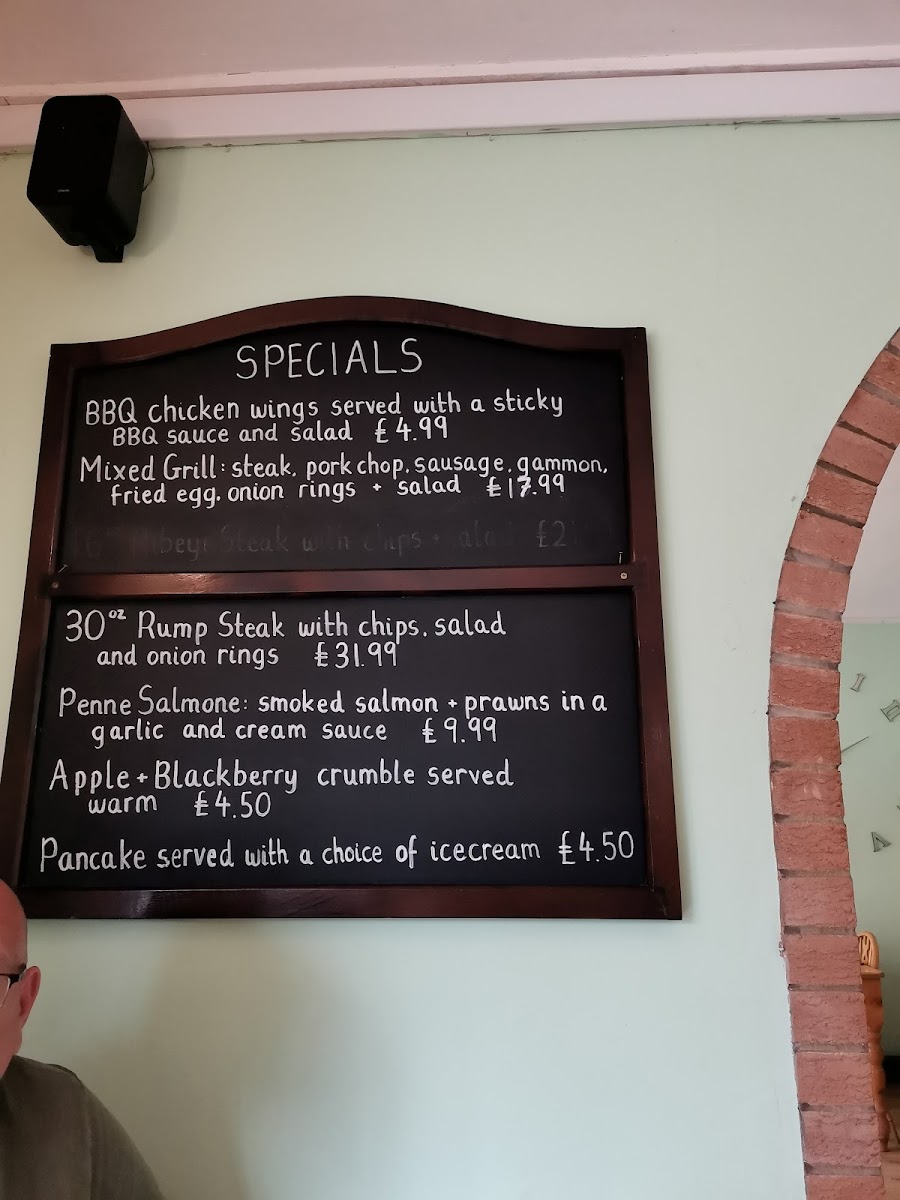 SPECIALS
BBQ chicken wings served with a sticky
BBQ sauce and salad £4.99
Mixed Grill: steak, pork chop, sausage, gammon,
fried egg, onion rings + salad £17.99
Steak with chips + salad £21
30oz Rump Steak with chips, salad
and onion rings £31.99
Penne Salmone: smoked salmon + prawns in a
garlic and cream sauce £9.99
Apple + Blackberry crumble served
warm £4.50
Pancake served with a choice of icecream £4.50